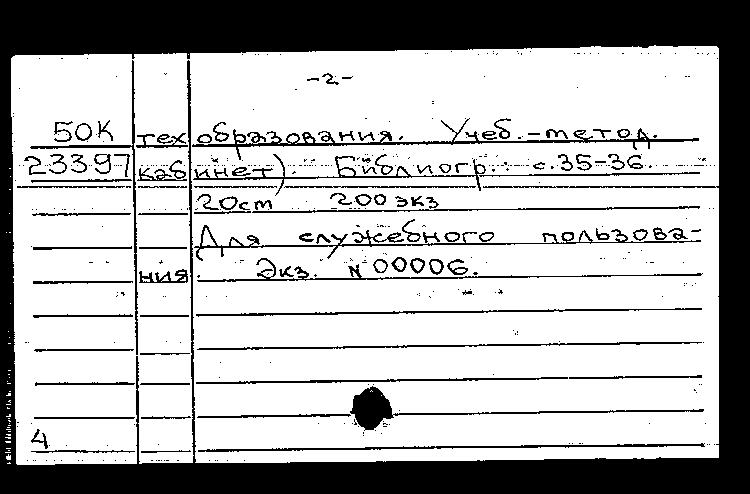 -2-
50К тех образования. Учеб.-метод.
23397 кабинет). Библиогр.: с.35-36.
20cm 200 экз
Для служебного пользова-
ния. Экз. N 00006.
4